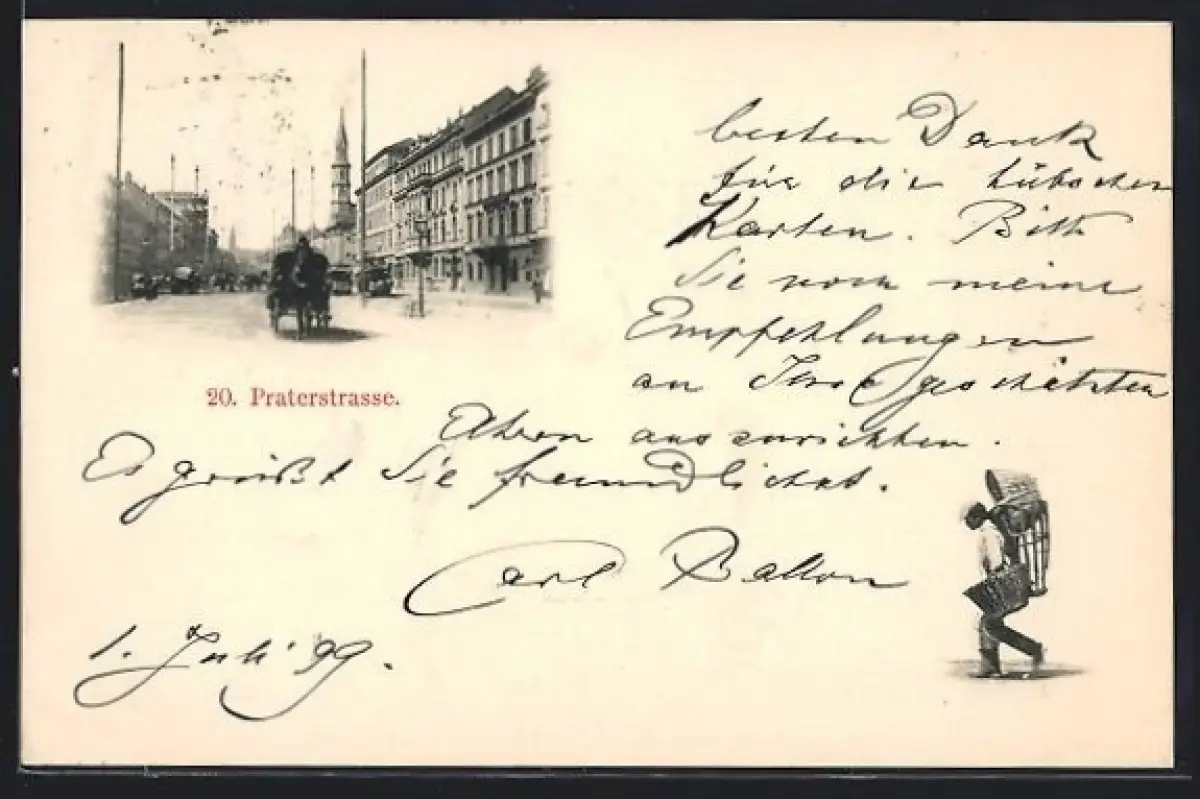 besten Dank
für die hübschen
Karten. Bitte
Sie noch meine
Empfehlungen
an Ihre geschätzten
20. Praterstrasse.
Eltern auszurichten.
Es grüßt Sie freundlichst.
Carl
1. Juli 99.